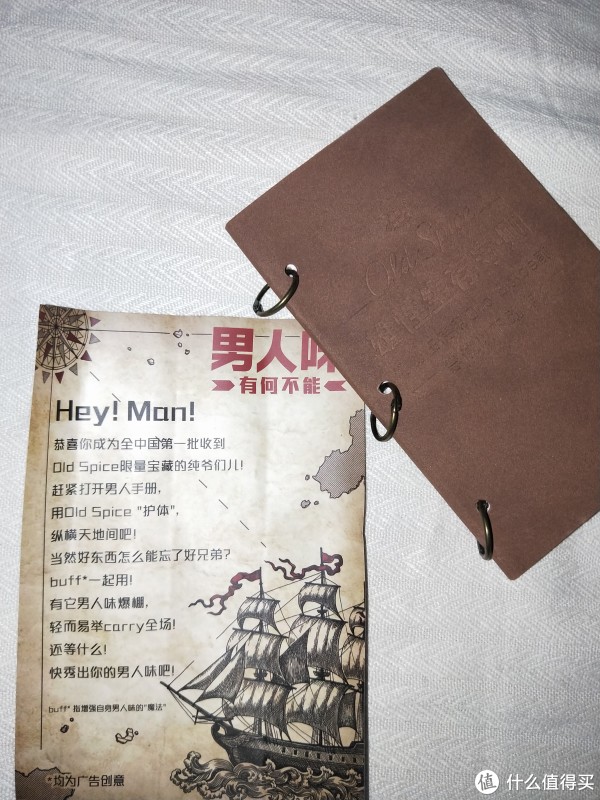 Old Spice
男人味
有何不能
Hey! Man!
恭喜你成为全中国第一批收到
Old Spice限量宝藏的纯爷们儿!
赶紧打开男人手册,
用Old Spice "护体",
纵横天地间吧!
当然好东西怎么能忘了好兄弟?
buff*一起用!
有它男人味爆棚,
轻而易举carry全场!
还等什么!
快秀出你的男人味吧!
buff* 指增强自身男人味的"魔法"
*均为广告创意
值 什么值得买